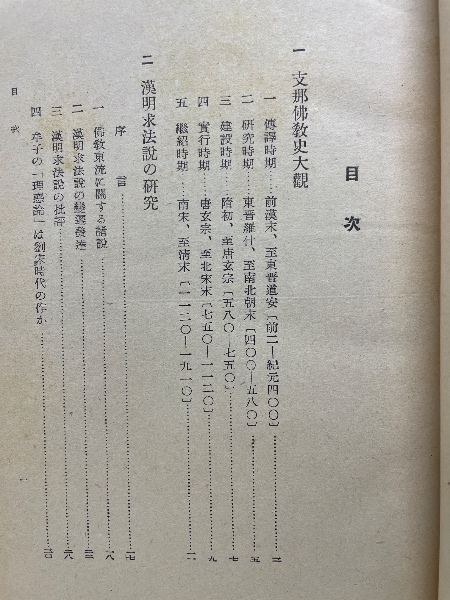 目次
一 支那佛教史大觀
一 傳譯時期 前漢末、至東晋道安〔前二—紀元四〇〇〕 三
二 研究時期 東晋羅什、至南北朝末〔四〇〇—五八〇〕 五
三 建設時期 隋初、至唐玄宗〔五八〇—七五〇〕 七
四 實行時期 唐玄宗、至北宋末〔七五〇—一一二〇〕 九
五 繼紹時期 南宋、至清末〔一一二〇—一九一〇〕 一一
二 漢明求法説の研究
序言 一七
一 佛教東流に關する諸説 一八
二 漢明求法説の變遷發達
三 漢明求法説の批評 二八
四 牟子の「理惑論」は劉宋時代の作か
目次